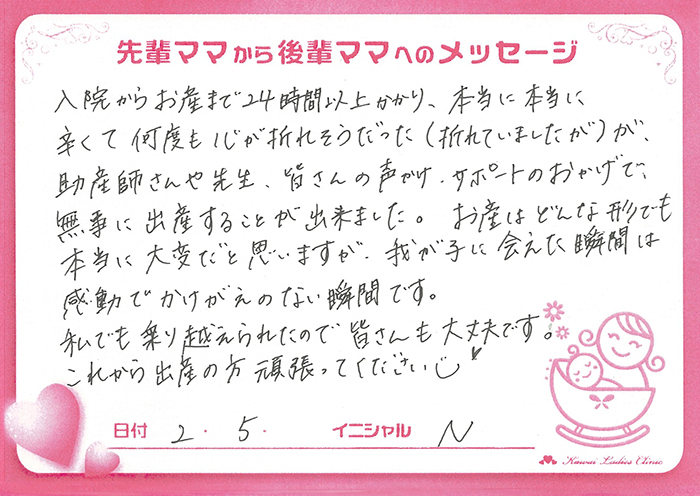 先輩ママから後輩ママへのメッセージ
入院からお産まで24時間以上かかり、本当に本当に
辛くて何度も心が折れそうだった(折れていましたが)が、
助産師さんや先生、皆さんの声かけ・サポートのおかげで、
無事に出産することが出来ました。お産はどんな形でも
本当に大変だと思いますが、我が子に会えた瞬間は
感動でかけがえのない瞬間です。
私でも乗り越えられたので皆さんも大丈夫です。
これから出産の方頑張ってください
日付 2・5・ イニシャル N
Kawai Ladies Clinic